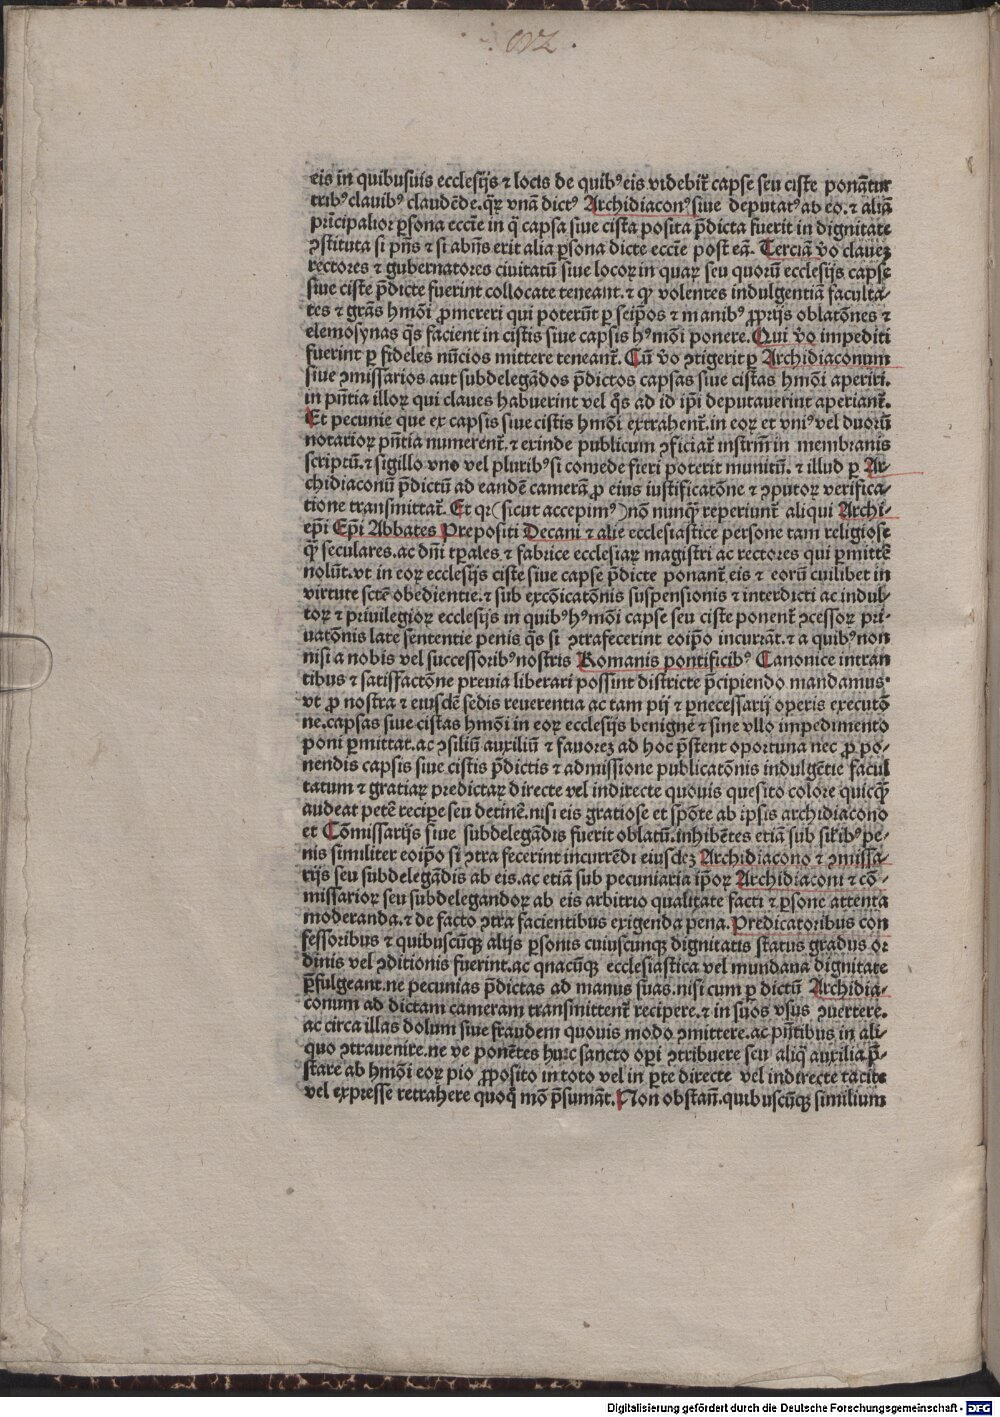 eis in quibusuis ecclesijs ⁊ locis de quibꝰ eis videbit̃ capse seu ciste ponãtur
tribꝰ clauibꝰ claudẽde. qꝝ vnã dictꝰ Archidiaconꝰ siue deputatꝰ ab eo. ⁊ aliã
prĩcipalior ꝑsona eccłie in q̃ capsa siue cista posita p̃dicta fuerit in dignitate
ꝯstituta si pñs ⁊ si abñs erit alia ꝑsona dicte eccłie post eã. Terciã vo᷑ claueꝫ
rectores ⁊ gubernatores ciuitatũ siue locoꝝ in quaꝝ seu quorũ ecclesijs capse
siue ciste p̃dicte fuerint collocate teneant. ⁊ ꝙ volentes indulgentiã faculta⸗
tes ⁊ gr̃as hmõi ꝓmereri qui poterũt ꝑ seip̃os ⁊ manibꝰ ꝓprijs oblatões ⁊
elemosynas q̃s facient in cistis siue capsis hꝰmõi ponere. Qui vo᷑ impediti
fuerint ꝑ fideles nũcios mittere teneant̃. Cũ vo᷑ ꝯtigerit ꝑ Archidiaconum
siue ꝯmissarios aut subdelegãdos p̃dictos capsas siue cistas hmõi aperiri.
in pñtia illoꝝ qui claues habuerint vel q̃s ad id ip̃i deputauerint aperiant̃.
Et pecunie que ex capsis siue cistis hmõi extrahent̃. in eoꝝ et vniꝰ vel duorũ
notarioꝝ pñtia numerent̃. ⁊ exinde publicum ꝯficiat̃ instrm̃ in membranis
scriptũ. ⁊ sigillo vno vel pluribꝰ si comede fieri poterit munitũ. ⁊ illud ꝑ Ar⸗
chidiaconũ p̃dictũ ad eandẽ camerã ꝓ eius iustificatõne ⁊ ꝯputoꝝ verifica⸗
tione transmittat̃. Et qꝛ (sicut accepimꝰ) nõ nunqᷓ reperiunt̃ aliqui Archi⸗
ep̃i Ep̃i Abbates Prepositi Decani ⁊ alie ecclesiastice persone tam religiose
qᷓ seculares. ac dñi tp̃ales ⁊ fabrice ecclesiaꝝ magistri ac rectores qui ꝑmittẽ
nolũt. vt in eoꝝ ecclesijs ciste siue capse p̃dicte ponant̃ eis ⁊ eorũ cuilibet in
virtute sctẽ obedientie. ⁊ sub excõicatõnis suspensionis ⁊ interdicti ac indul⸗
toꝝ ⁊ priuilegioꝝ ecclesijs in quibꝰ hꝰmõi capse seu ciste ponent̃ ꝯcessoꝝ pri⸗
uatõnis late sententie penis q̃s si ꝯtrafecerint eoip̃o incurrãt. ⁊ a quibꝰ non
nisi a nobis vel successoribꝰ nostris Romanis pontificibꝰ Canonice intran
tibus ⁊ satisfactõne preuia liberari possint districte p̃cipiendo mandamus
vt ꝓ nostra ⁊ eiusdẽ sedis reuerentia ac tam pij ⁊ ꝑnecessarij operis executõ
ne. capsas siue cistas hmõi in eoꝝ ecclesijs benigne ⁊ sine vllo impedimento
poni ꝑmittat. ac ꝯsiliũ auxiliũ ⁊ fauoreꝫ ad hoc p̃stent oportuna nec ꝓ po⸗
nendis capsis siue cistis p̃dictis ⁊ admissione publicatõnis indulgẽtie facul
tatum ⁊ gratiaꝝ predictaꝝ directe vel indirecte quouis quesito colore quicqᷓ
audeat petẽ recipe seu detinẽ. nisi eis gratiose et spõte ab ipsis archidiacono
et Cõmissarijs siue subdelegãdis fuerit oblatũ. inhibẽtes etiã sub sił̃ibꝰ pe⸗
nis similiter eoip̃o si ꝯtra fecerint incurrẽdi eiusdeꝫ Archidiacono ⁊ ꝯmissa⸗
rijs seu subdelegãdis ab eis. ac etiã sub pecuniaria ip̃oꝝ Archidiaconi ⁊ cõ⸗
missarioꝝ seu subdelegandoꝝ ab eis arbitrio qualitate facti ⁊ ꝑsone attenta
moderanda. ⁊ de facto ꝯtra facientibus exigenda pena. Predicatoribus con
fessoribus ⁊ quibuscũqꝫ alijs ꝑsonis cuiuscunqꝫ dignitatis status gradus or
dinis vel ꝯditionis fuerint. ac qnacũqꝫ ecclesiastica vel mundana dignitate
p̃fulgeant. ne pecunias p̃dictas ad manus suas. nisi cum ꝑ dictũ Archidia⸗
conum ad dictam cameram transmittent̃ recipere. ⁊ in suos vsus ꝯuertere.
ac circa illas dolum siue fraudem quouis modo ꝯmittere. ac pñtibus in ali⸗
quo ꝯtrauenire. ne ve ponẽtes huic sancto op̃i ꝯtribuere seu aliq̃ auxilia p̃⸗
stare ab hmõi eoꝝ pio ꝓposito in toto vel in ꝑte directe vel indirecte tacite
vel expresse retrahere quoq̃ mõ p̃sumãt. Non obstañ. quibuscũqꝫ similium
Digitalisierung gefördert durch die Deutsche Forschungsgemeinschaft - DFG